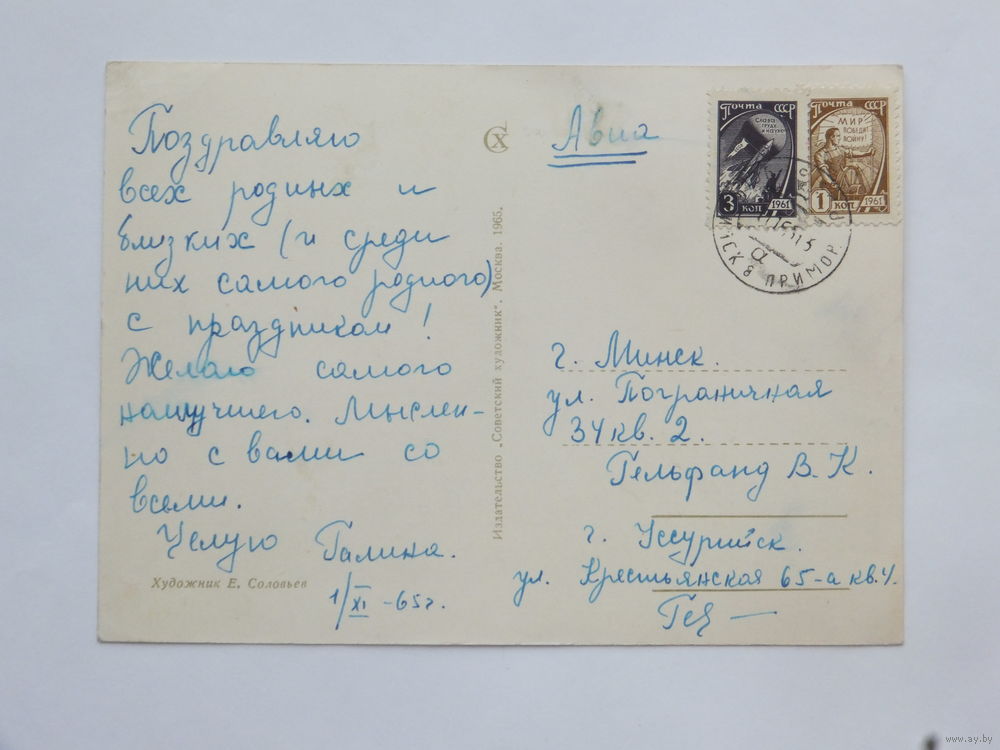 Поздравляю
всех родных и
близких (и среди
них самого родного)
с праздником!
Желаю самого
наилучшего. Мыслен-
но с вами со
всеми.
Целую Галина.
1/XI -65г.
Художник Е. Соловьев
Издательство „Советский художник“. Москва. 1965.
СХ
Авиа
ПОЧТА СССР
СЛАВА
ТРУДУ
И НАУКЕ
3 КОП 1961
ПОЧТА СССР
МИР
ПОБЕДИТ
ВОЙНУ!
1 КОП 1961
ПРИМОР.
г. Минск.
ул. Пограничная
34 кв. 2.
Гельфанд В. К.
г. Уссурийск.
ул. Крестьянская 65-а кв. 4.
www.ay.by